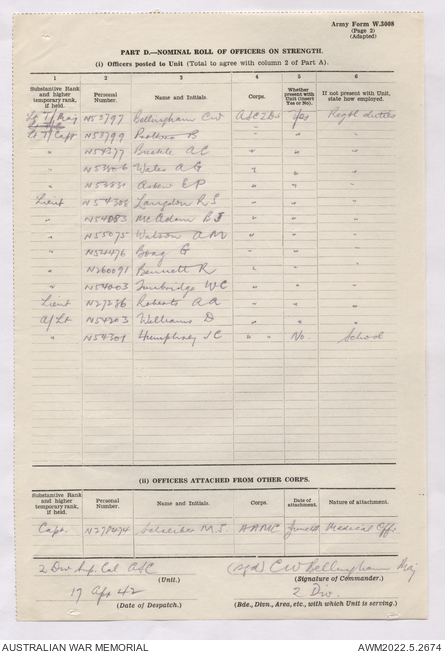 Army Form W.3008
(Page 2)
(Adapted)
PART D.—NOMINAL ROLL OF OFFICERS ON STRENGTH.
(i) Officers posted to Unit (Total to agree with column 2 of Part A).
1 2 3 4 5 6
Substantive Rank and higher temporary rank, if held. Personal Number. Name and Initials. Corps. Whether present with Unit (Insert Yes or No). If not present with Unit, state how employed.
Lt T/Maj N53797 Bellingham C W Yes Regtl duties
Lt T/Capt N53799 B " "
" N54377 A C " " "
" Wales A G " " "
" Aston E P " " "
Lieut N54308 Langdon R S " " "
" N54083 McAdam B J " " "
" N55075 Watson A M " " "
" Boag G " " "
" N260091 Bennett R " " "
" N54003 Tunbridge W C " " "
Lieut N27286 Roberts A A " " "
A/Lt N54203 Williams D " " "
" N54301 Humphrey J C " " No. School
(ii) OFFICERS ATTACHED FROM OTHER CORPS.
Substantive Rank and higher temporary rank, if held. Personal Number. Name and Initials. Corps. Date of attachment. Nature of attachment.
Capt. N278474 M. S. AAMC Medical Offr
2 Div Sup. Col ASC (Sgd) C W Bellingham Maj
(Unit.) (Signature of Commander.)
17 Apr 42 2 Div.
(Date of Despatch.) (Bde., Divn., Area, etc., with which Unit is serving.)
AUSTRALIAN WAR MEMORIAL AWM2022.5.2674